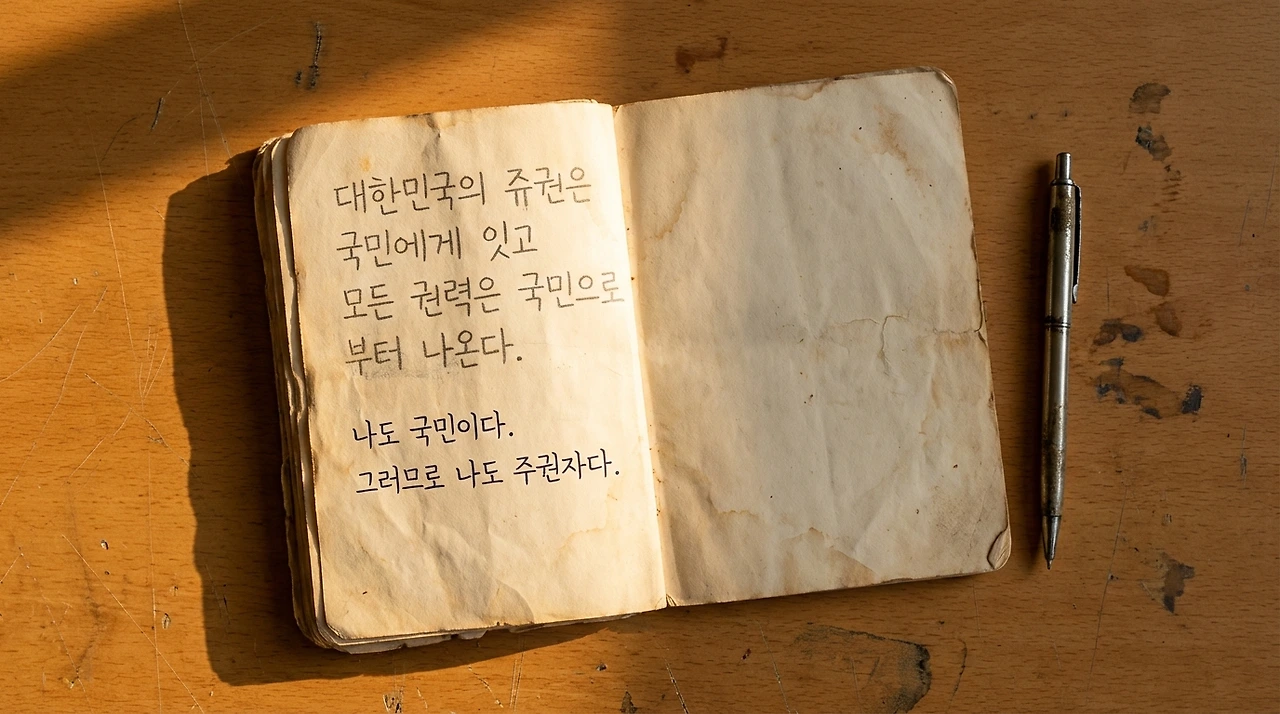 대한민국의 쥬권은
국민에게 잇고
모든 권력은 국민으로
부터 나온다.
나도 국민이다.
그러므로 나도 주권자다.